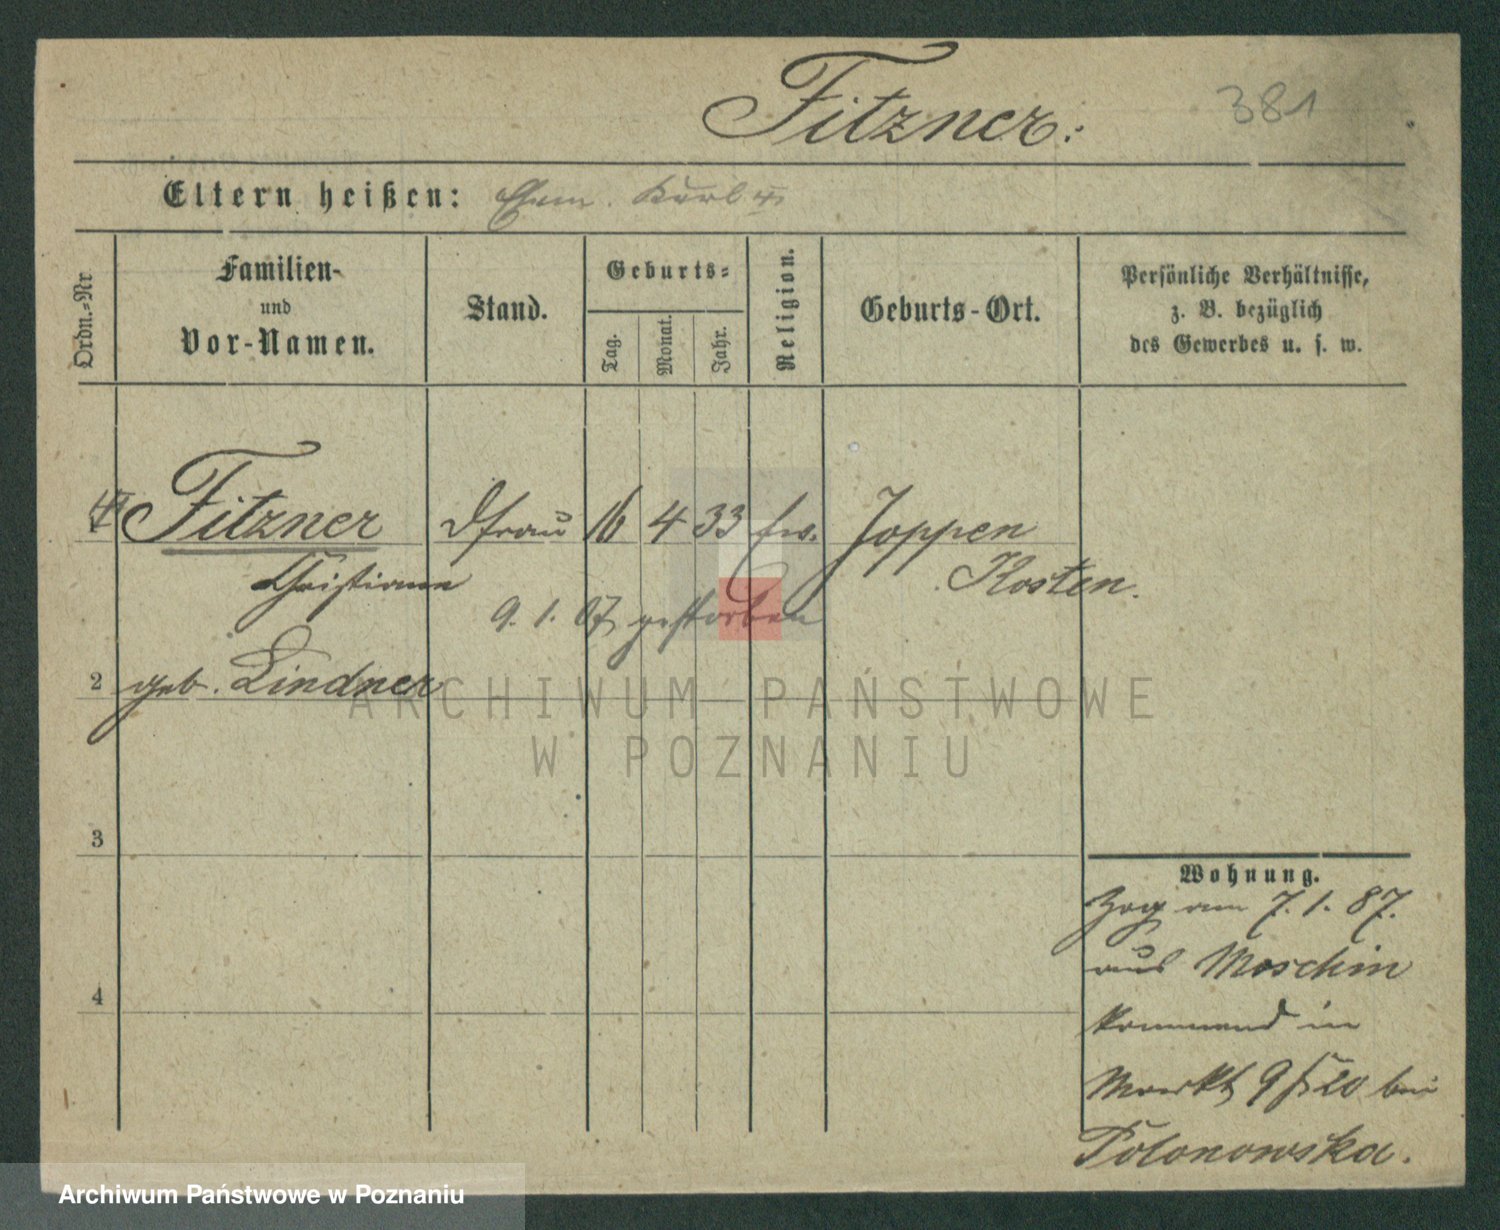 Fitzner:
381
Eltern heißen: Ehem. Karl
Ordn.-Nr
Familien-
und
Vor-Namen.
Stand.
Geburts-
Tag.
Monat.
Jahr.
Religion.
Geburts-Ort.
Persönliche Verhältnisse,
z. B. bezüglich
des Gewerbes u. s. w.
Fitzner 16 4 33 ew. Joppen
Christiane Kosten.
9. 1. 87 gestorben
2 geb. Lindner
3
4
Wohnung.
Zog am 7. 1. 87.
aus Moschin
kommend in
Markt 9 bei
Polonowska.
ARCHIWUM PAŃSTWOWE
W POZNANIU
Archiwum Państwowe w Poznaniu